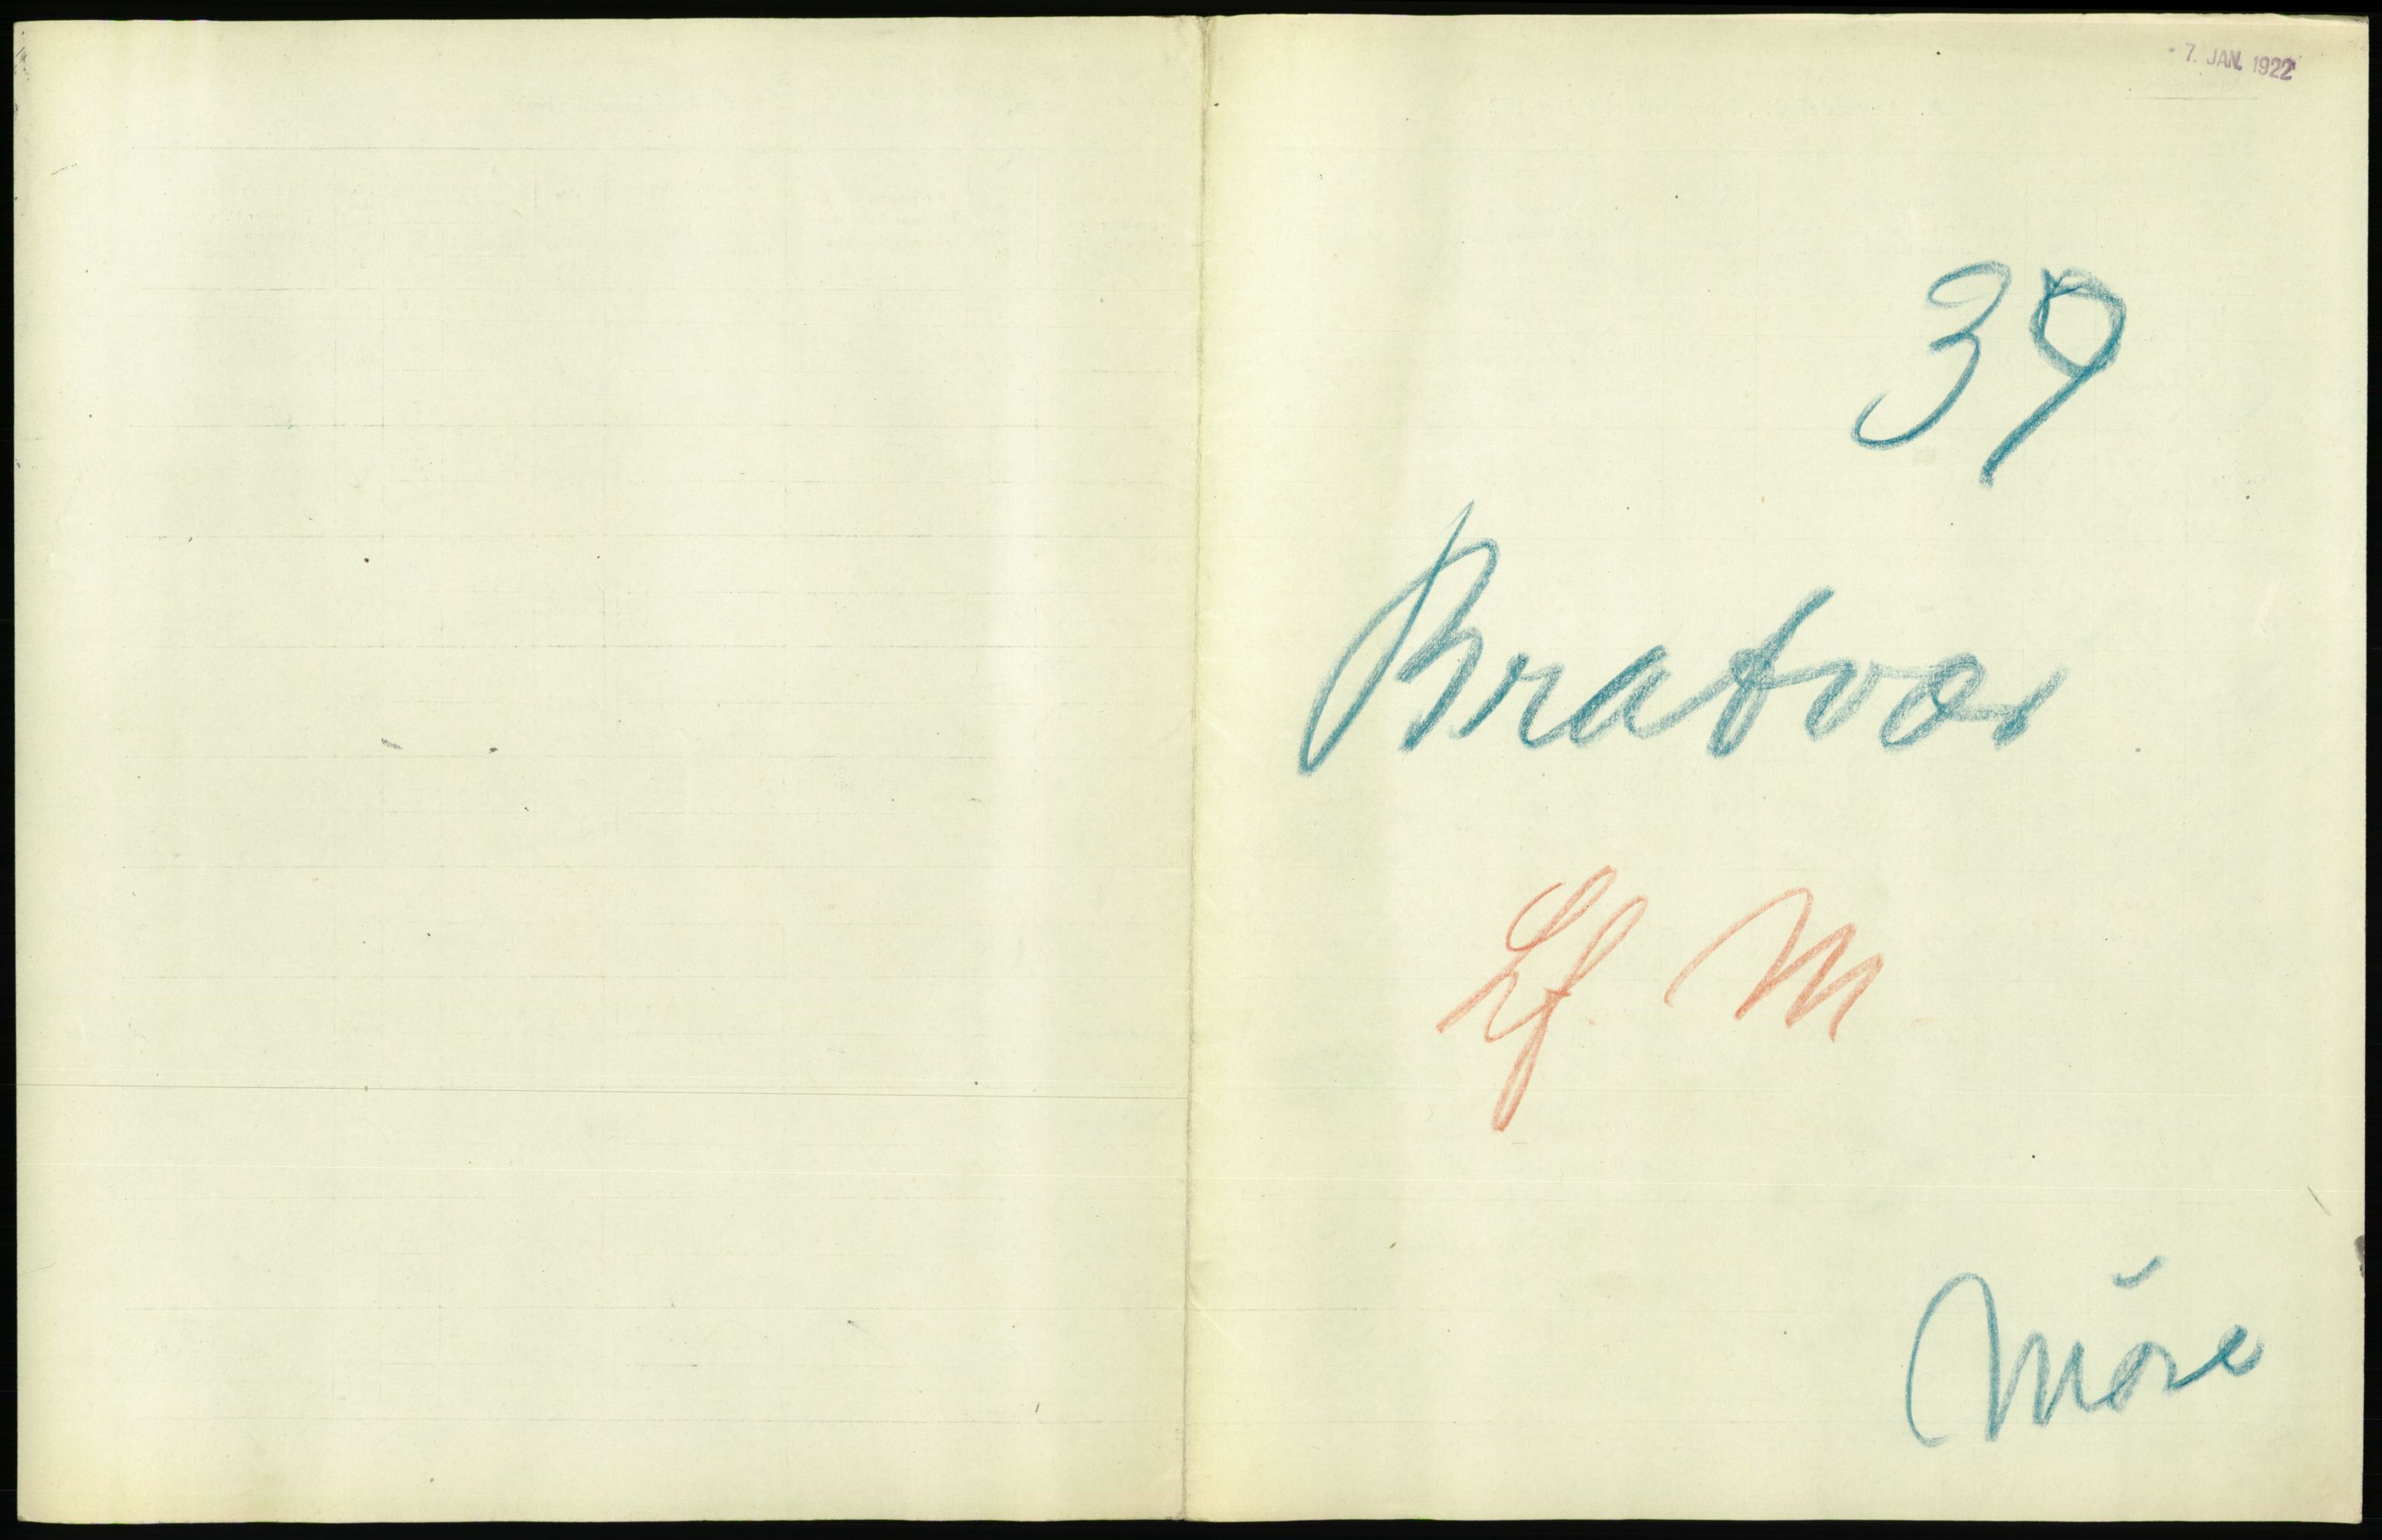 - 7. JAN. 1922
39
Bratvær
Lf. M.
Möre